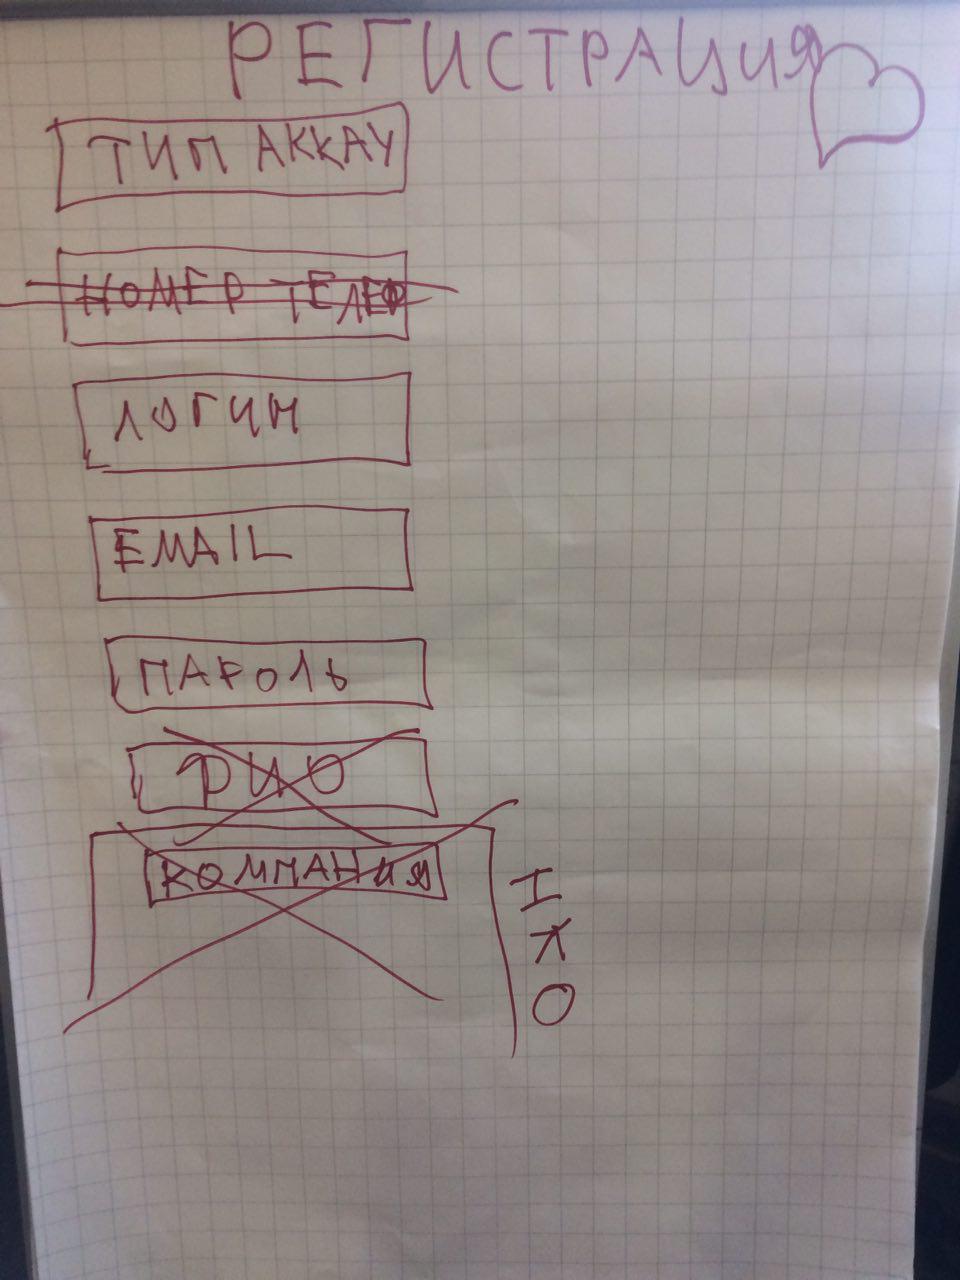 РЕГИСТРАЦИЯ
ТИП АККАУ
НОМЕР ТЕЛЕФ
ЛОГИН
EMAIL
ПАРОЛЬ
ФИО
КОМПАНИЯ
НКО